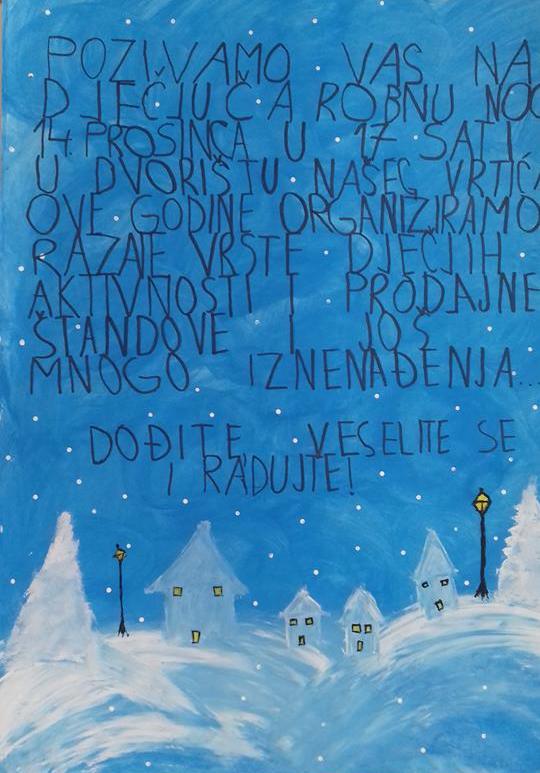 POZIVAMO VAS NA
DJEČJU ČAROBNU NOĆ
14. PROSINCA U 17 SATI
U DVORIŠTU NAŠEG VRTIĆA
OVE GODINE ORGANIZIRAMO
RAZNE VRSTE DJEČJIH
AKTIVNOSTI I PRODAJNE
ŠTANDOVE I JOŠ
MNOGO IZNENAĐENJA...
DOĐITE, VESELITE SE
I RADUJTE!